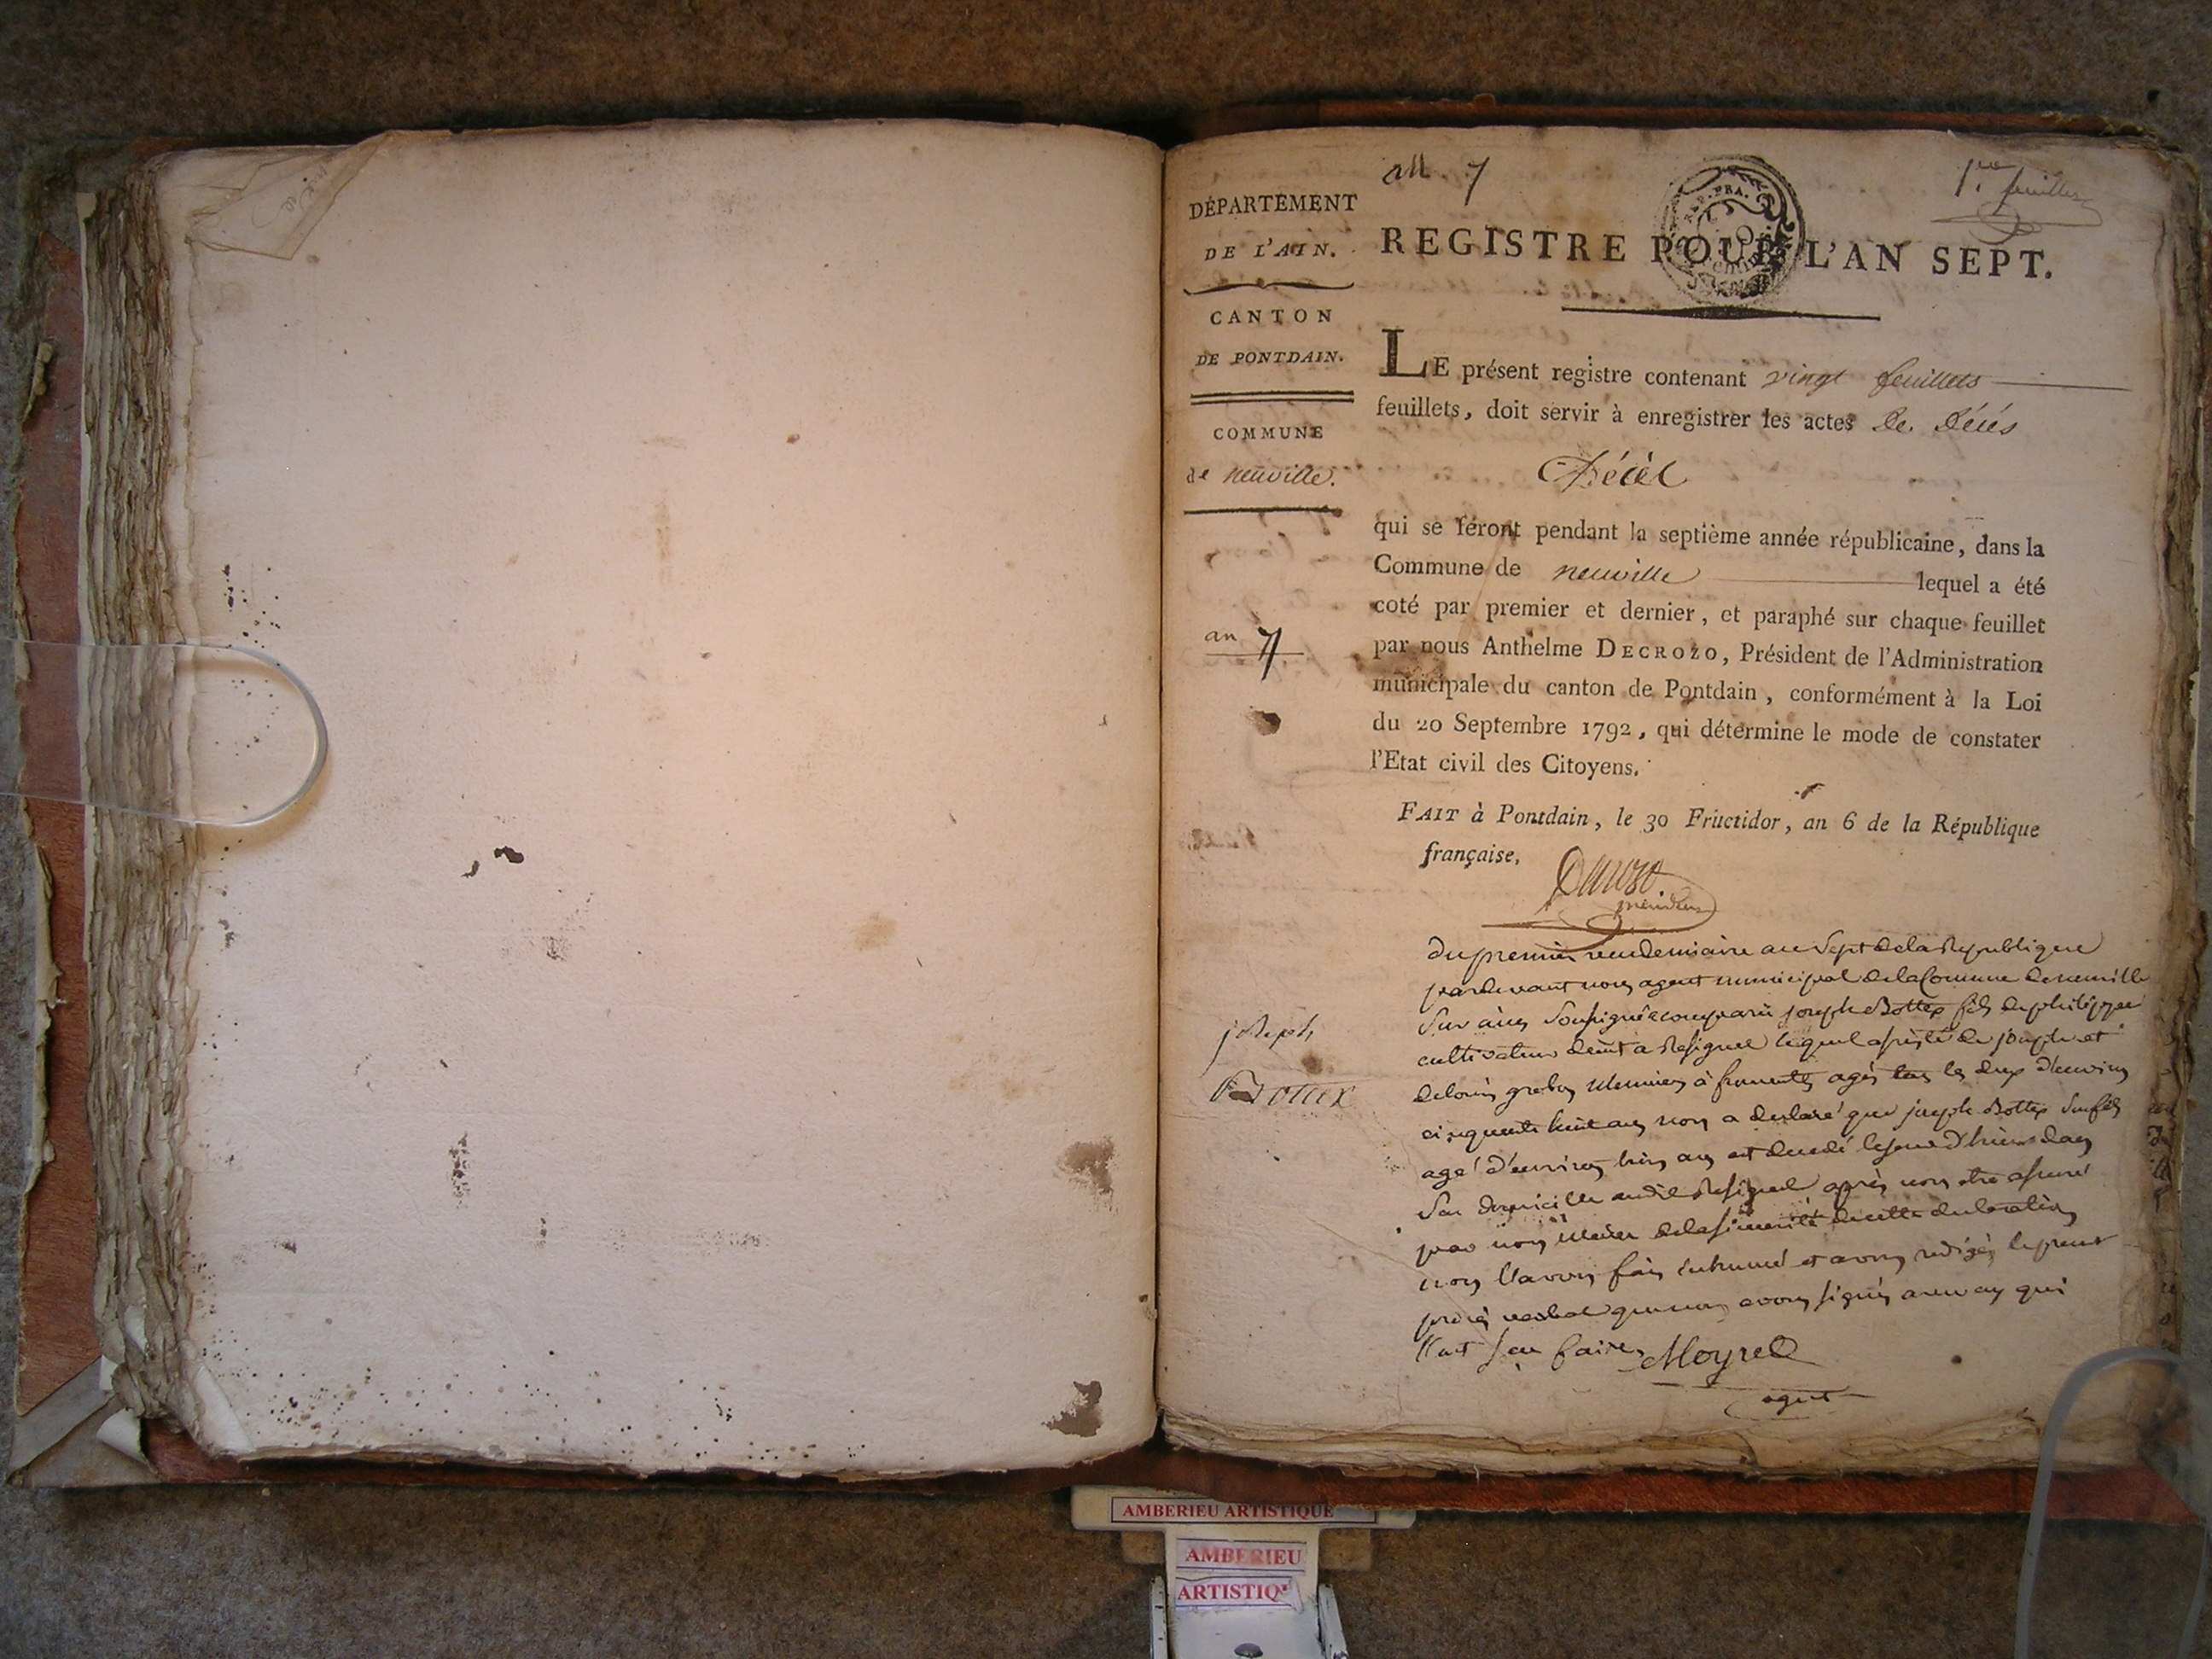 an. 7
1.re feuillet
DÉPARTEMENT
DE L'AIN.
CANTON
DE PONTDAIN.
COMMUNE
de neuville.
an 7
REGISTRE POUR L'AN SEPT.
LE présent registre contenant vingt feuillets
feuillets, doit servir à enregistrer les actes de décés
Décès
qui se feront pendant la septième année républicaine, dans la
Commune de neuville lequel a été
coté par premier et dernier, et paraphé sur chaque feuillet
par nous Anthelme DECROZO, Président de l'Administration
municipale du canton de Pontdain, conformément à la Loi
du 20 Septembre 1792, qui détermine le mode de constater
l'Etat civil des Citoyens.
FAIT à Pontdain, le 30 Fructidor, an 6 de la République
française,
Decrozo
président
joseph
Bottex
du premier vendemiaire an sept de la Republique
pardevant nous agent municipal de la Commune de neuville
sur ain soussigné a comparu joseph Bottex fils de philippe
cultivateur lequel assisté de joseph et
agés les deux d'environ
cinquante huit ans nous a declaré que joseph Bottex son fils
agé d'environ ans est decedé le jour d'hier dans
son domicille audit après nous etre assuré
par nous de la sincerité de cette declaration
nous l'avons fait inhumé et avons redigés le present
procés verbal que nous avons signés
l'ont sçu faire Moyret
agent
AMBERIEU ARTISTIQUE
AMBERIEU
ARTISTIQ